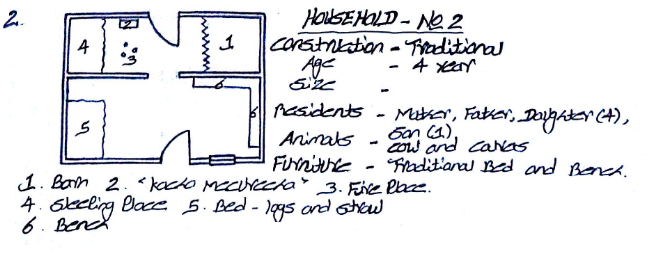 2.
HOUSEHOLD - No. 2
Construction - Traditional
Age - 4 year
Size -
Residents - Mother, Father, Daughter (4),
Son (1)
Animals - cow and calves
Furniture - Traditional Bed and Bench.
2
4
3
1
6
6
5
1. Barn 2. " 3. Fire Place.
4. Sleeping Place 5. Bed - logs and straw
6. Bench